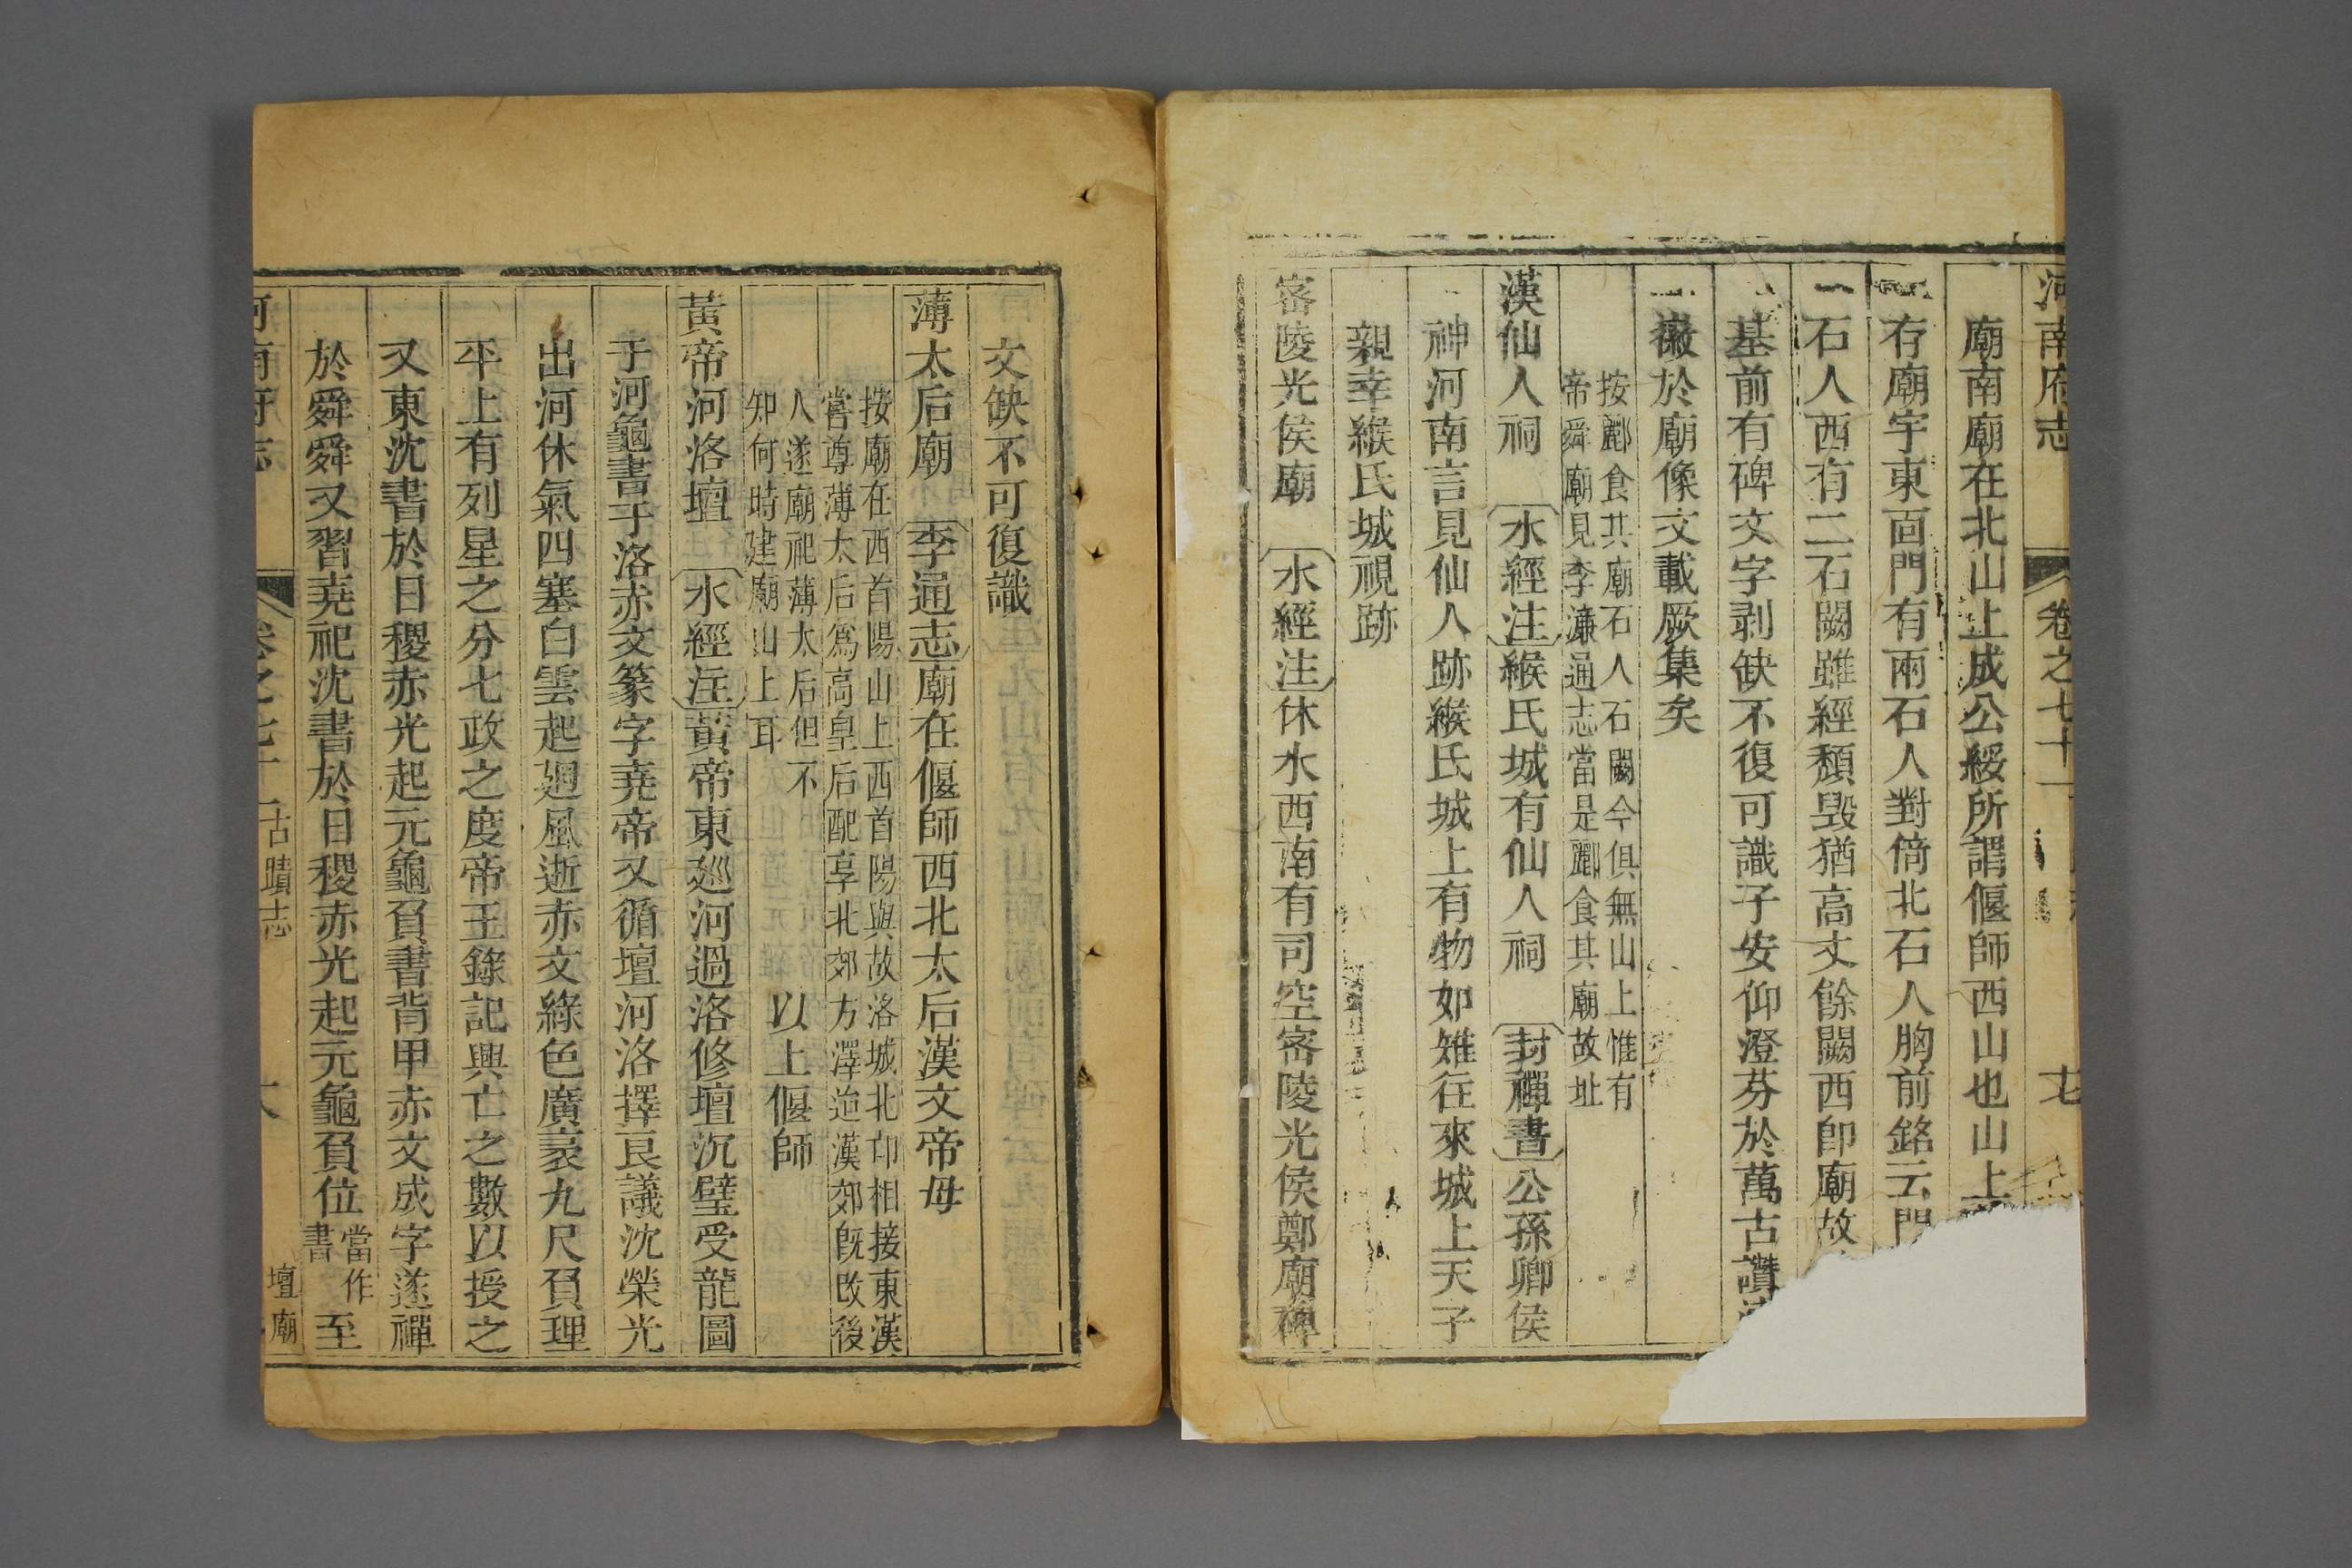 河南府志 卷之七十一 七
廟南廟在北山上成公綏所謂偃師西山也山上
存廟宇東面門有兩石人對倚北石人胸前銘云門
石人西有二石闕雖經頹毁猶高丈餘闕西即廟故
基前有碑文字剥缺不復可識子安仰澄芬於萬古讚
徽於廟像文載厥集矣
按酈食其廟石人石闕今俱無山上惟有
帝舜廟見李濂通志當是酈食其廟故址
漢仙人祠 水經注緱氏城有仙人祠 封禪書公孫卿侯
神河南言見仙人跡緱氏城上有物如雉往來城上天子
親幸緱氏城視跡
密陵光侯廟 水經注休水西南有司空密陵光侯鄭廟碑
文缺不可復識
薄太后廟 李通志廟在偃師西北太后漢文帝母
按廟在西首陽山上西首陽與故洛城北邙相接東漢
嘗尊薄太后爲高皇后配享北郊方澤迨漢郊既改後
人遂廟祀薄太后但不
知何時建廟山上耳
以上偃師
黄帝河洛壇 水經注黄帝東廵河過洛修壇沉璧受龍圖
于河龜書于洛赤文篆字堯帝又循壇河洛擇良議沈榮光
出河休氣四塞白雲起廻風逝赤文綠色廣袤九尺負理
平上有列星之分七政之度帝王錄記興亡之數以授之
又東沈書於日稷赤光起元龜負書背甲赤文成字遂禪
於舜舜又習堯祀沈書於日稷赤光起元龜負位當作書至
河南府志 卷之七十一古蹟志 壇廟